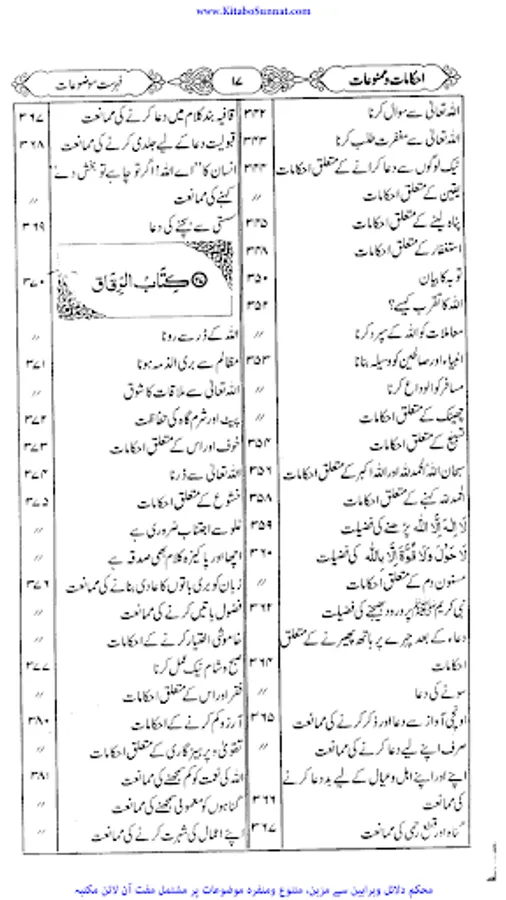 www.KitaboSunnat.com
احکامات و ممنوعات
۱۷
فہرست موضوعات
اللہ تعالیٰ سے سوال کرنا ۳۴۲
اللہ تعالیٰ سے مغفرت طلب کرنا ۳۴۳
نیک لوگوں سے دعا کرانے کے متعلق احکامات ۳۴۴
یقین کے متعلق احکامات //
پناہ لینے کے متعلق احکامات ۳۴۵
استغفار کے متعلق احکامات ۳۴۸
توبہ کا بیان ۳۵۰
اللہ کا تقرب کیسے؟ ۳۵۲
معاملات کو اللہ کے سپرد کرنا //
انبیاء اور صالحین کو وسیلہ بنانا ۳۵۳
مسافر کو الوداع کرنا //
چھینک کے متعلق احکامات //
تسبیح کے متعلق احکامات ۳۵۴
سبحان اللہ الحمدللہ اور اللہ اکبر کے متعلق احکامات ۳۵۶
الحمدللہ کہنے کے متعلق احکامات ۳۵۸
لا إله إلا الله پڑھنے کی فضیلت ۳۵۹
لا حول ولا قوة إلا بالله کی فضیلت ۳۶۰
مسنون دم کے متعلق احکامات //
نبی کریم ﷺ پر درود بھیجنے کی فضیلت ۳۶۲
دعاء کے بعد چہرے پر ہاتھ پھیرنے کے متعلق
احکامات ۳۶۴
سونے کی دعا //
اونچی آواز سے دعا اور ذکر کرنے کی ممانعت ۳۶۵
صرف اپنے لیے دعا کرنے کی ممانعت //
اپنے اور اپنے اہل و عیال کے لیے بددعا کرنے
کی ممانعت ۳۶۶
گناہ اور قطع رحمی کی ممانعت ۳۶۷
قافیہ بند کلام میں دعا کرنے کی ممانعت ۳۶۷
قبولیت دعا کے لیے جلدی کرنے کی ممانعت ۳۶۸
انسان کا "اے اللہ! اگر تو چاہے تو بخش دے"
کہنے کی ممانعت //
سستی سے بچنے کی دعا ۳۶۹
كتاب الرقاق ۳۷۰
اللہ کے ڈر سے رونا //
مظالم سے بری الذمہ ہونا ۳۷۱
اللہ تعالیٰ سے ملاقات کا شوق //
پیٹ اور شرم گاہ کی حفاظت ۳۷۲
خوف اور اس کے متعلق احکامات ۳۷۳
اللہ تعالیٰ سے ڈرنا ۳۷۴
خشوع کے متعلق احکامات ۳۷۵
غلو سے اجتناب ضروری ہے //
اچھا اور پاکیزہ کلام بھی صدقہ ہے //
زبان کو بری باتوں کا عادی بنانے کی ممانعت ۳۷۶
فضول باتیں کرنے کی ممانعت //
خاموشی اختیار کرنے کے احکامات //
صبح و شام نیک عمل کرنا ۳۷۷
فقر اور اس کے متعلق احکامات //
آرزو کم کرنے کے احکامات ۳۸۰
تقویٰ و پرہیزگاری کے متعلق احکامات //
اللہ کی نعمت کو کم سمجھنے کی ممانعت ۳۸۱
گناہوں کو معمولی سمجھنے کی ممانعت //
اپنے اعمال کی شہرت کرنے کی ممانعت //
محکم دلائل وبراہین سے مزین، متنوع ومنفرد موضوعات پر مشتمل مفت آن لائن مکتبہ